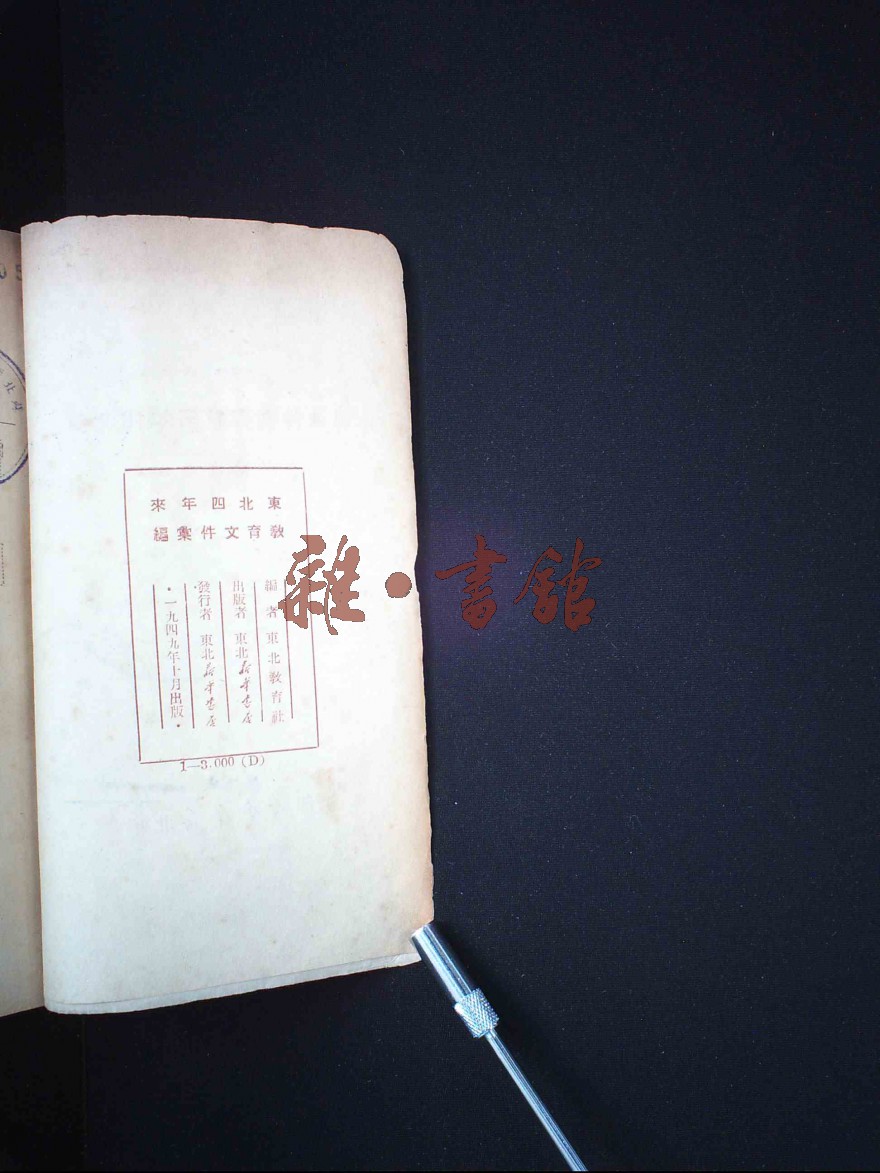 東北四年來
教育文件彙編
編者 東北教育社
出版者 東北新華書店
發行者 東北新華書店
·一九四九年十月出版·
1—3.000 (D)
雜·書館